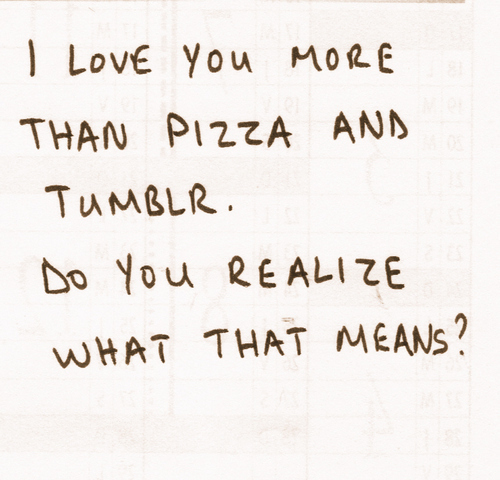 I LOVE YOU MORE
THAN PIZZA AND
TUMBLR.
DO YOU REALIZE
WHAT THAT MEANS?